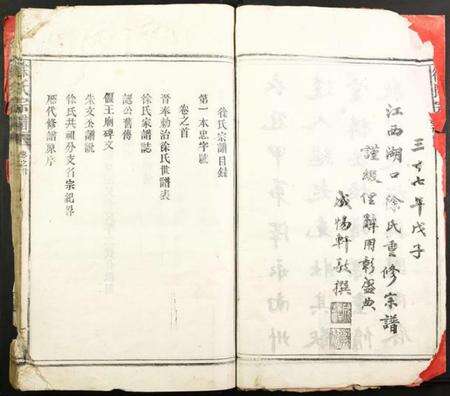 三十七年戊子
江西湖口徐氏重修宗譜
謹綴俚辭用彰盛典
成惕軒敬撰
徐氏宗譜目錄
第一本忠字號
卷之首
晉奉勅治徐氏世譜表
徐氏家譜誌
認公舊傳
偃王廟碑文
朱文公譜說
徐氏共祖分支省宗紀界
歷代修譜原序